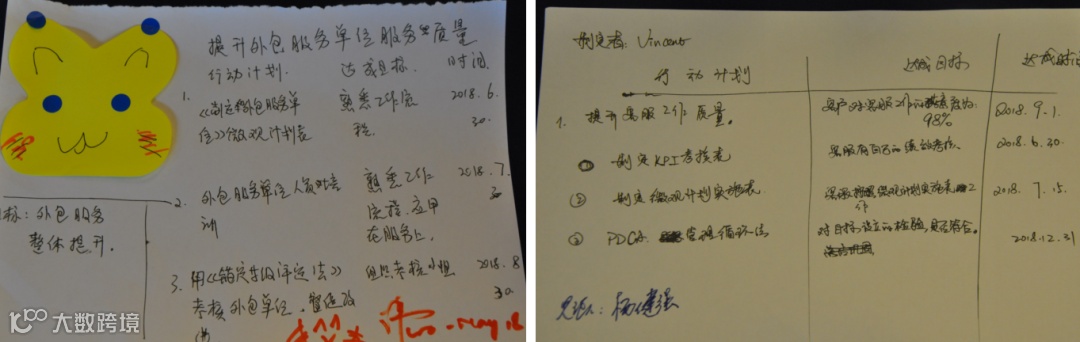 提升外包服务单位服务质量
行动计划. 达成目标. 时间.
1. 《制定外包服务单 熟悉工作流 2018.6.
位》微观计划表 程. 30.
2. 外包服务单位人员培 熟悉工作 2018.7.
训 流程.应用
在服务上.
目标:外包服务
整体提升.
3. 用《锚定等级评定法》 组织考核小组 2018.8
考核外包单位. 30
制定者:Vincent
行动计划 达成目标 达成时间
1. 提升客服工作质量。 客户对客服工作的满意度为: 98% 2018.9.1.
制定KPI考核表 2018.6.30.
② 制定微观计划实施表. 2018.7.15.
③ PDCA 管理循环法 对目标设立的检验,是否符合。 2018.12.31
大数跨境